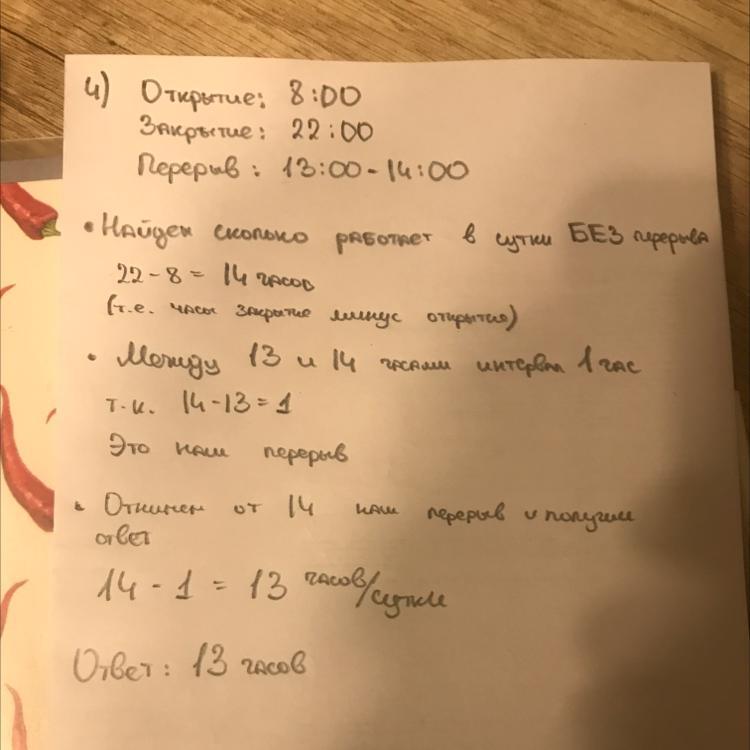 4) Открытие: 8:00
Закрытие: 22:00
Перерыв: 13:00-14:00
• Найдем сколько работает в сутки БЕЗ перерыва
22-8 = 14 часов
(т.е. часы закрытие минус открытия)
• Между 13 и 14 часами интервал 1 час
т.к. 14-13=1
Это наш перерыв
• Откинем от 14 наш перерыв и получим
ответ
14 - 1 = 13 часов/сутки
Ответ: 13 часов